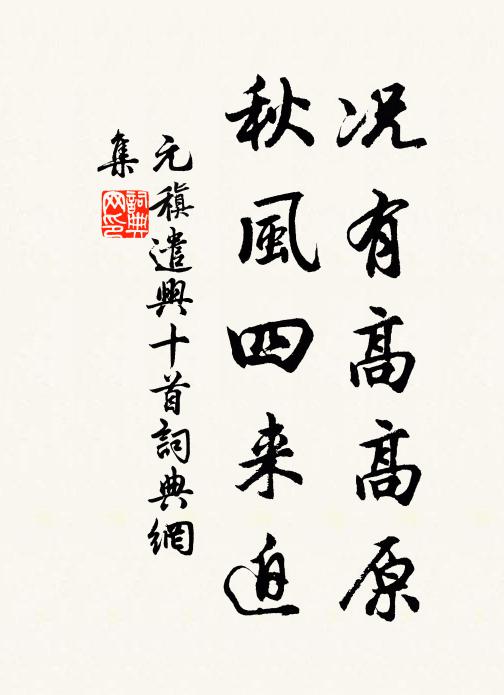 况有高高原
秋風四来迫
元稹遣興十首詞典網
集
詞典網印